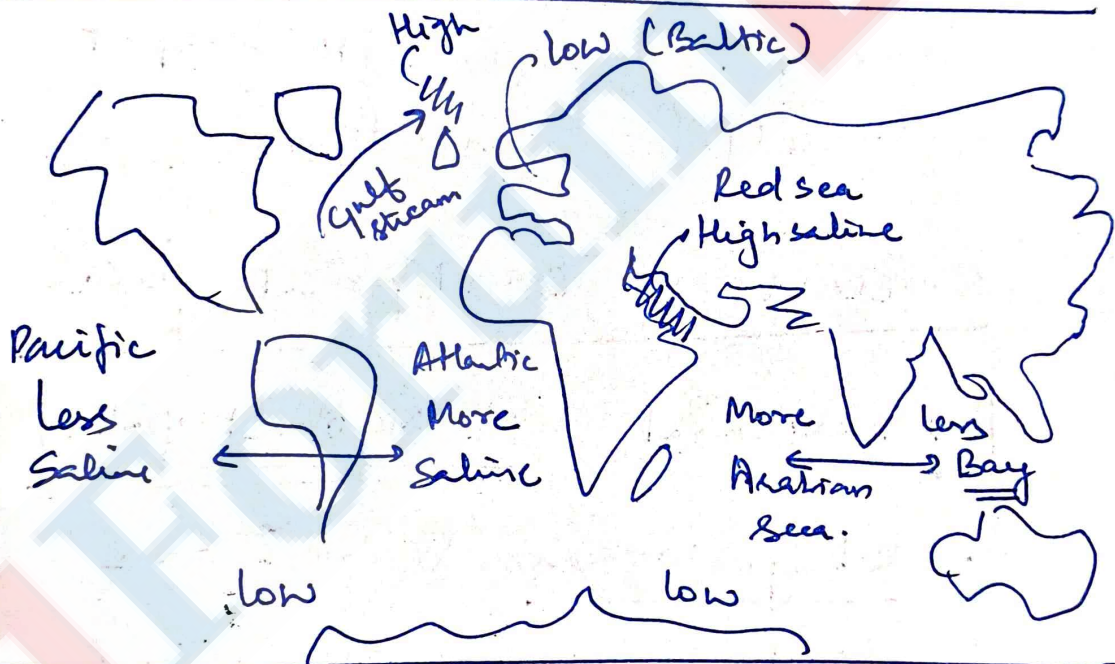 High
low (Baltic)
Gulf
stream
Red sea
High saline
Pacific
Less
Saline
Atlantic
More
Saline
More
Arabian
Sea.
less
Bay
low
low
Forum